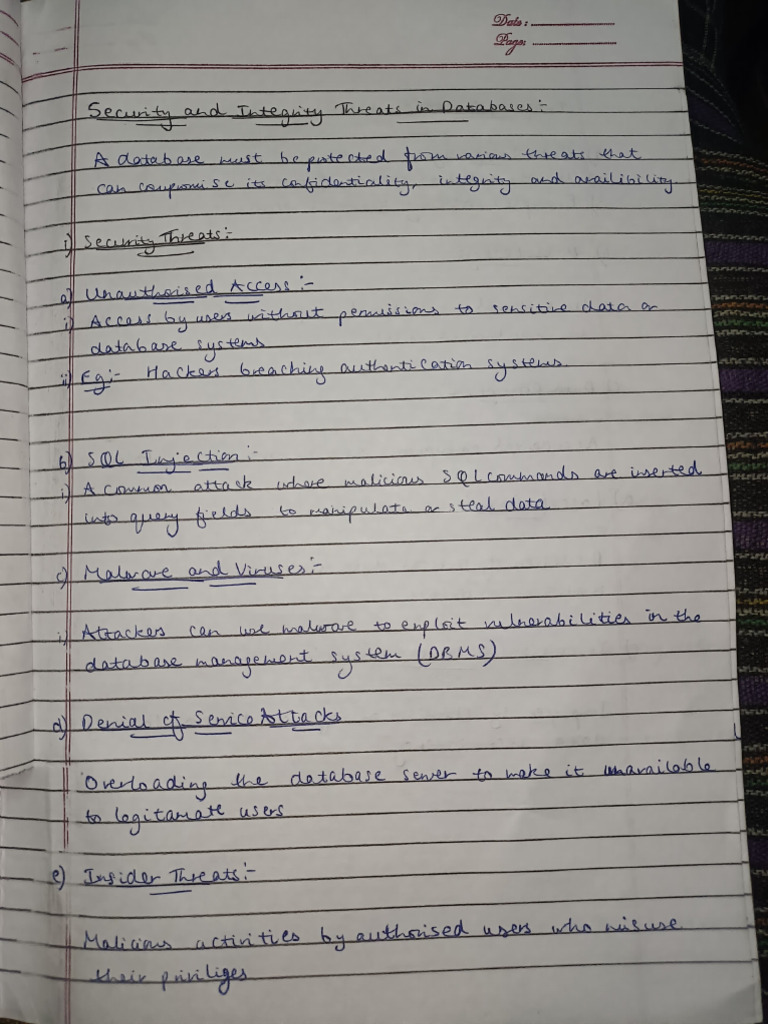 Date:
Page:
Security and Integrity Threats in Databases:-
A database must be protected from various threats that
can compromise its confidentiality, integrity and availibility
i) Security Threats:-
a) Unauthorised Access:-
i) Access by users without permissions to sensitive data or
database systems
ii) Eg:- Hackers breaching authentication systems.
b) SQL Injection:-
i) A common attack where malicious SQL commands are inserted
into query fields to manipulate or steal data
c) Malware and Viruses:-
i) Attackers can use malware to exploit vulnerabilities in the
database management system (DBMS)
d) Denial of Service Attacks
Overloading the database server to make it unavailable
to legitamate users
e) Insider Threats:-
Malicious activities by authorised users who misuse
their priviliges